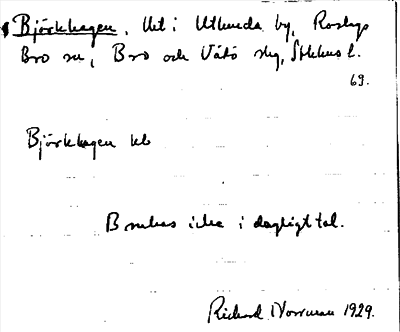 Björkhagen, lht i Utlunda by, Roslags
Bro sn, Bro och Vätö skg, Sthlms l.
69.
Björkhagen kb
Brukas icke i dagligt tal.
Rickard Norrman 1929.